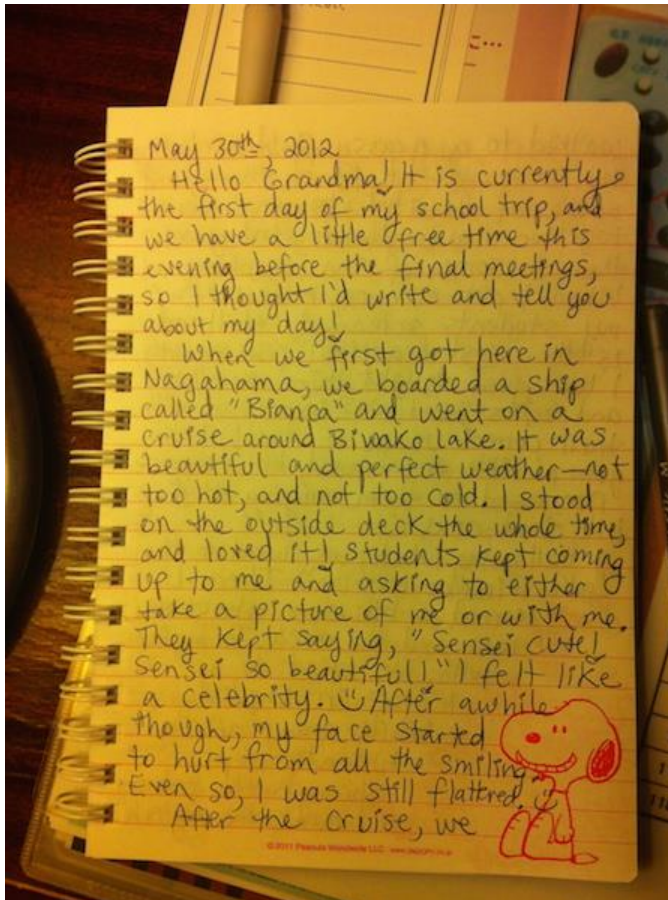 May 30th, 2012
Hello Grandma! It is currently
the first day of my school trip, and
we have a little free time this
evening before the final meetings,
so I thought I'd write and tell you
about my day!
When we first got here in
Nagahama, we boarded a ship
called "Bianca" and went on a
cruise around Biwako lake. It was
beautiful and perfect weather—not
too hot, and not too cold. I stood
on the outside deck the whole time,
and loved it! Students kept coming
up to me and asking to either
take a picture of me or with me.
They kept saying, "Sensei cute!
Sensei so beautiful!" I felt like
a celebrity. ☺ After awhile
though, my face started
to hurt from all the smiling.
Even so, I was still flattred. ☺
After the cruise, we
©2011 Peanuts Worldwide LLC